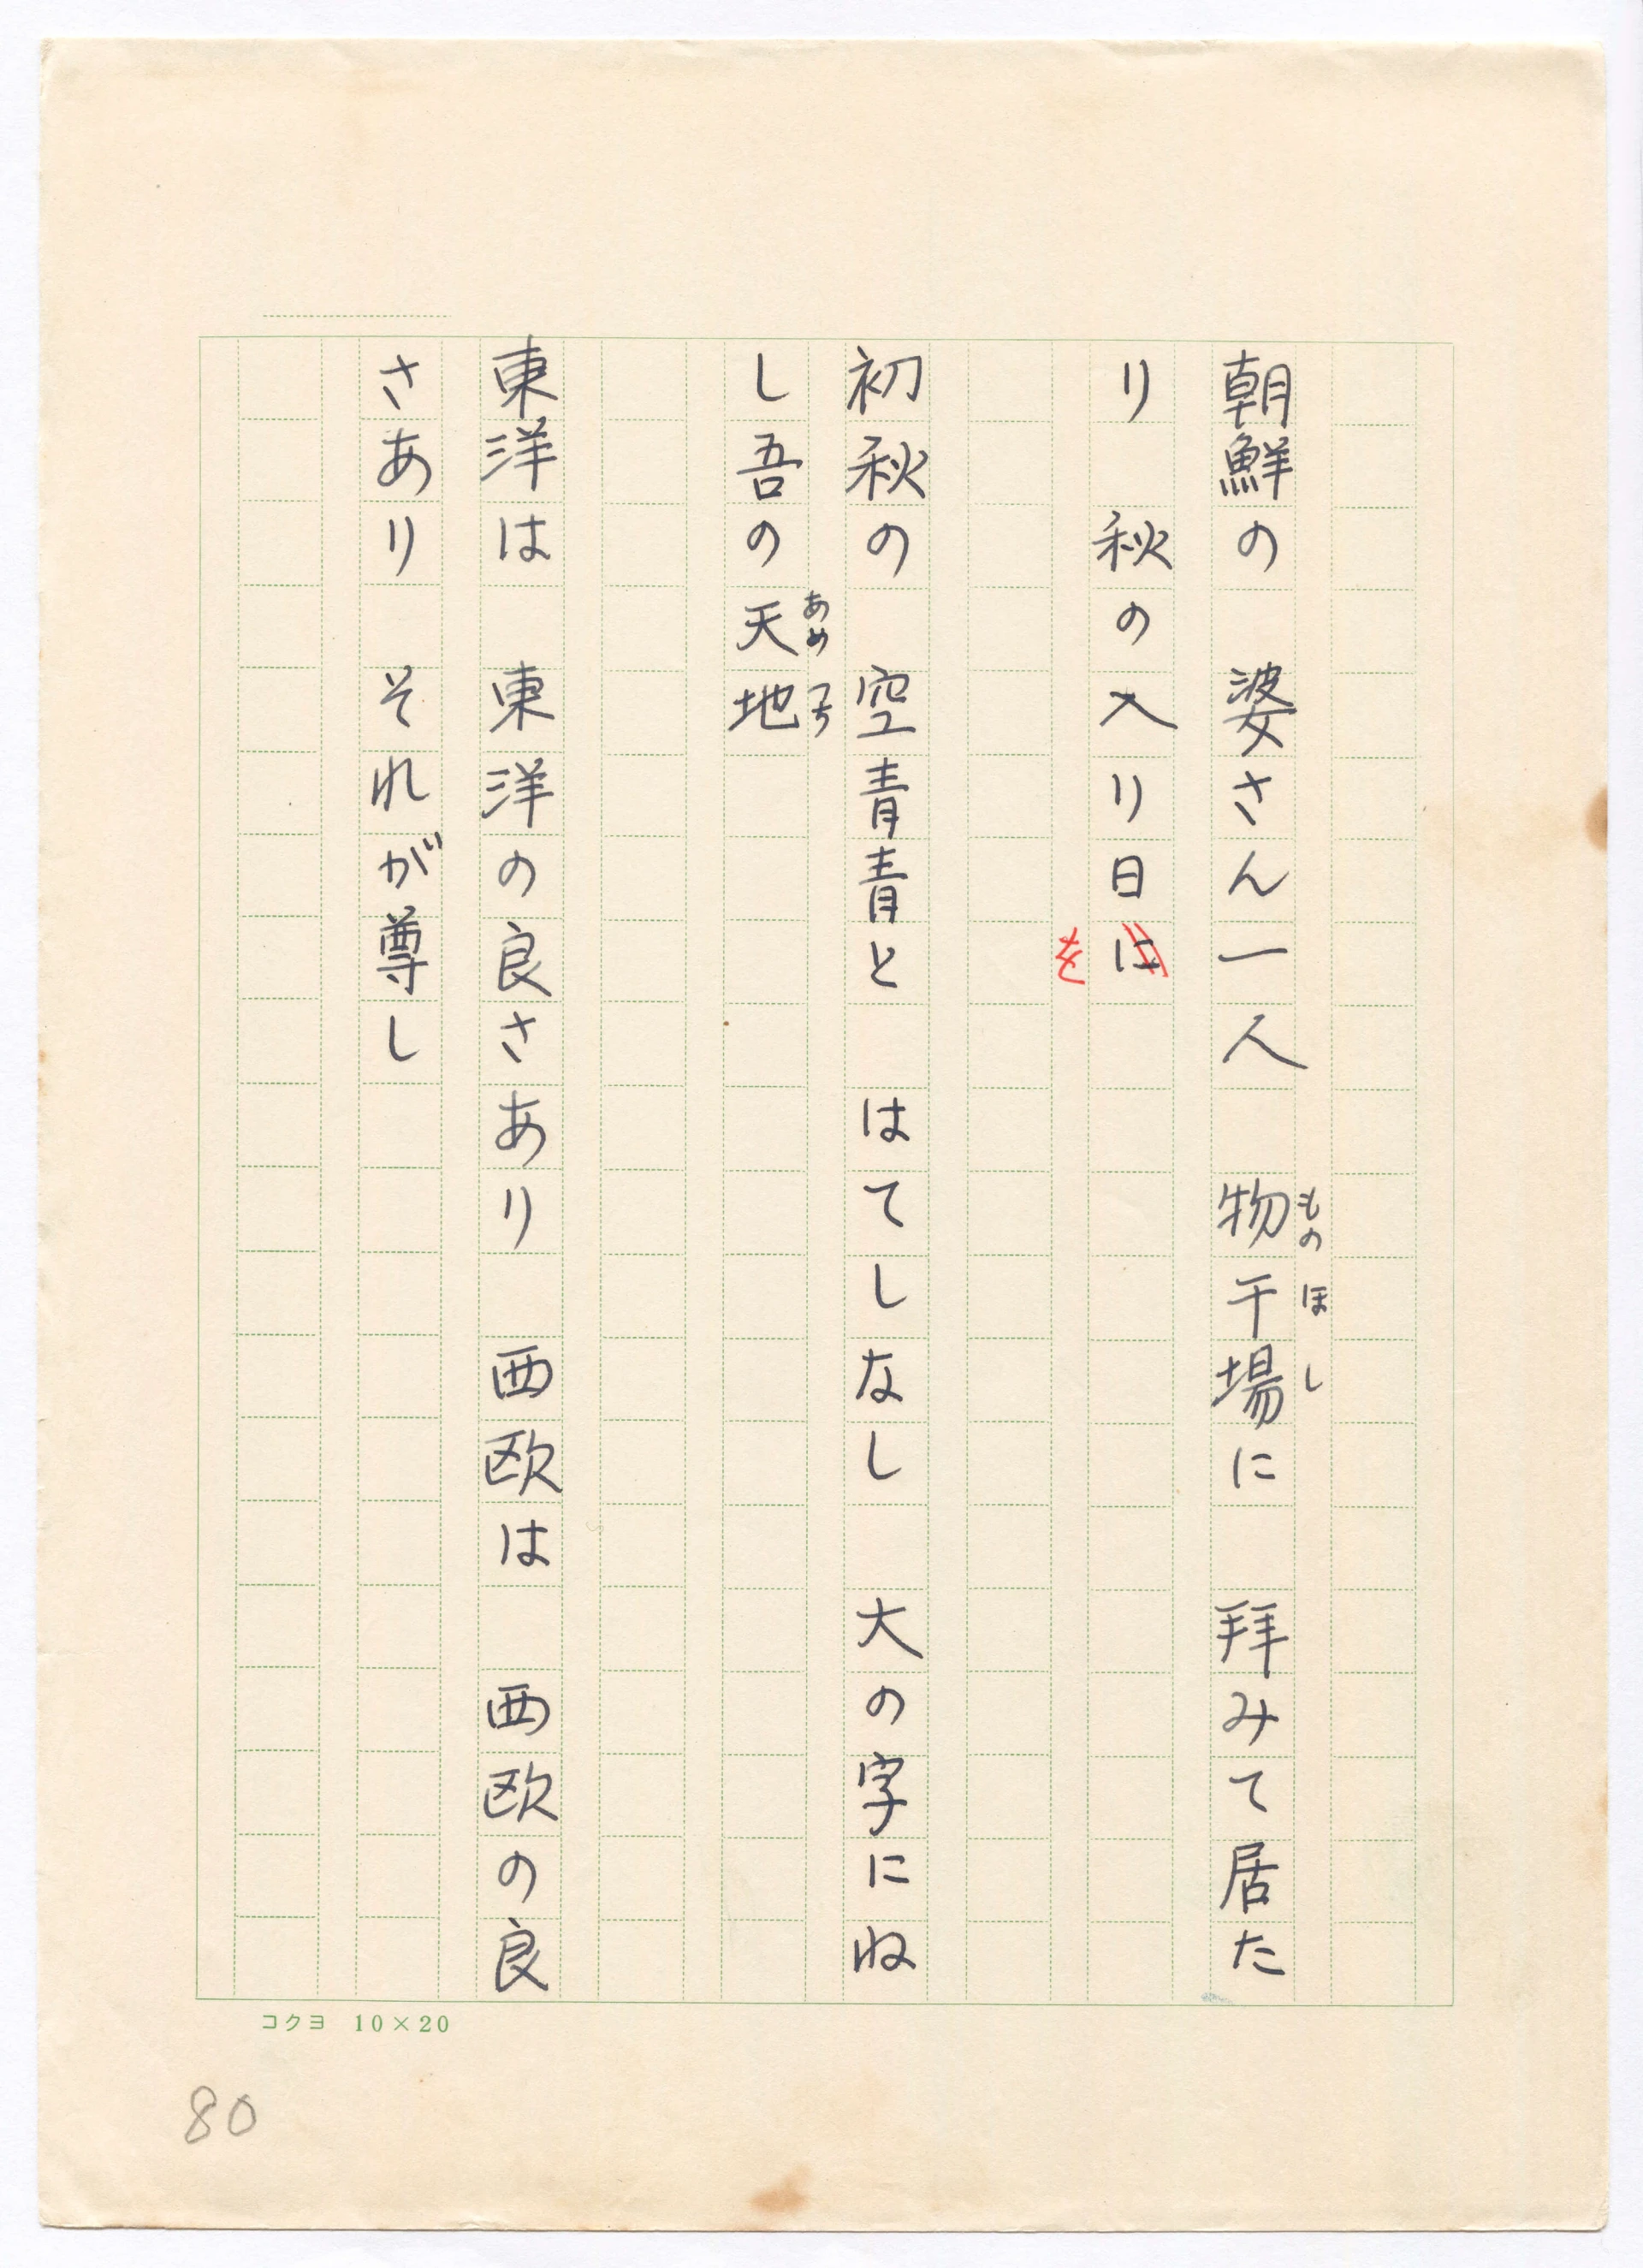 朝鮮の　婆さん一人　物干場に　拝みて居た
ものほし
り　秋の入り日に
を
初秋の　空青青と　はてしなし　大の字にね
し吾の天地
あめつち
東洋は　東洋の良さあり　西欧は　西欧の良
さあり　それが尊し
コクヨ　10×20
80